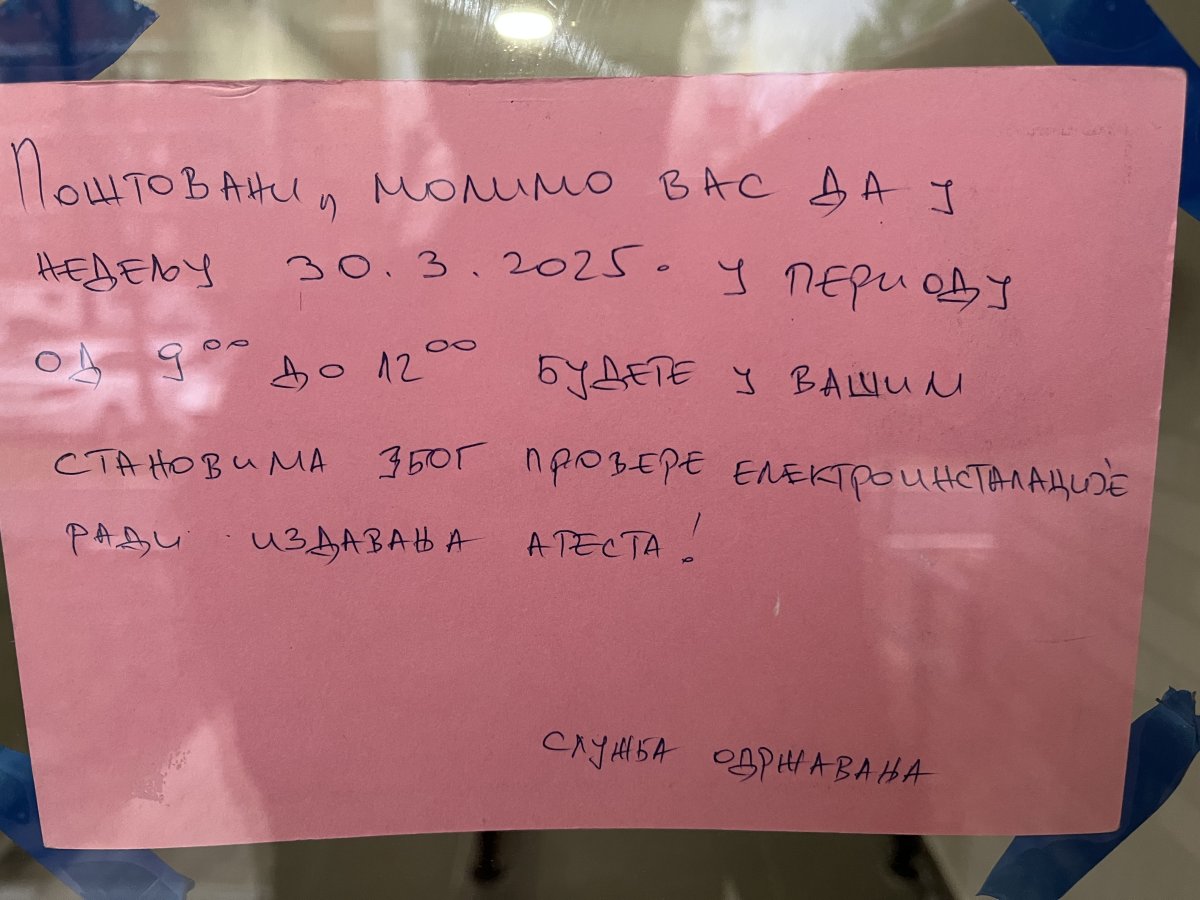 Поштовани, молимо вас да у
недељу 30.3.2025. у периоду
од 9⁰⁰ до 12⁰⁰ будете у вашим
становима због провере електроинсталације
ради издавања атеста!
Служба одржавања